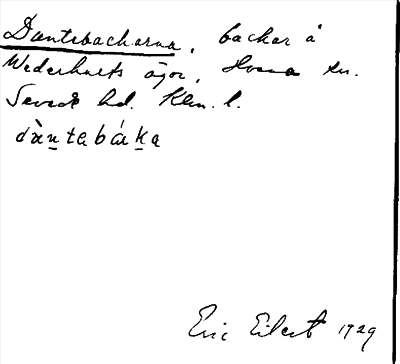 Dantebackarna, backar å
Wederhults ägor, Hvena sn.
Sevede hd. Klm. l.
dàntabáka
Eric Eilert 1929